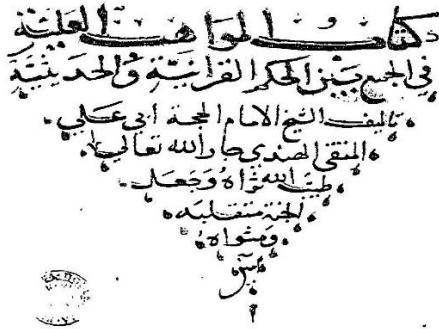 كتاب المواهب العلية
في الجمع بين الحكم القرانية والحديثية
تاليف الشيخ الامام الحجة ابي علي
المتقي الهندي جار الله تعالى
طيب الله ثراه وجعل
الجنة متقلبه
ومثواه
امين